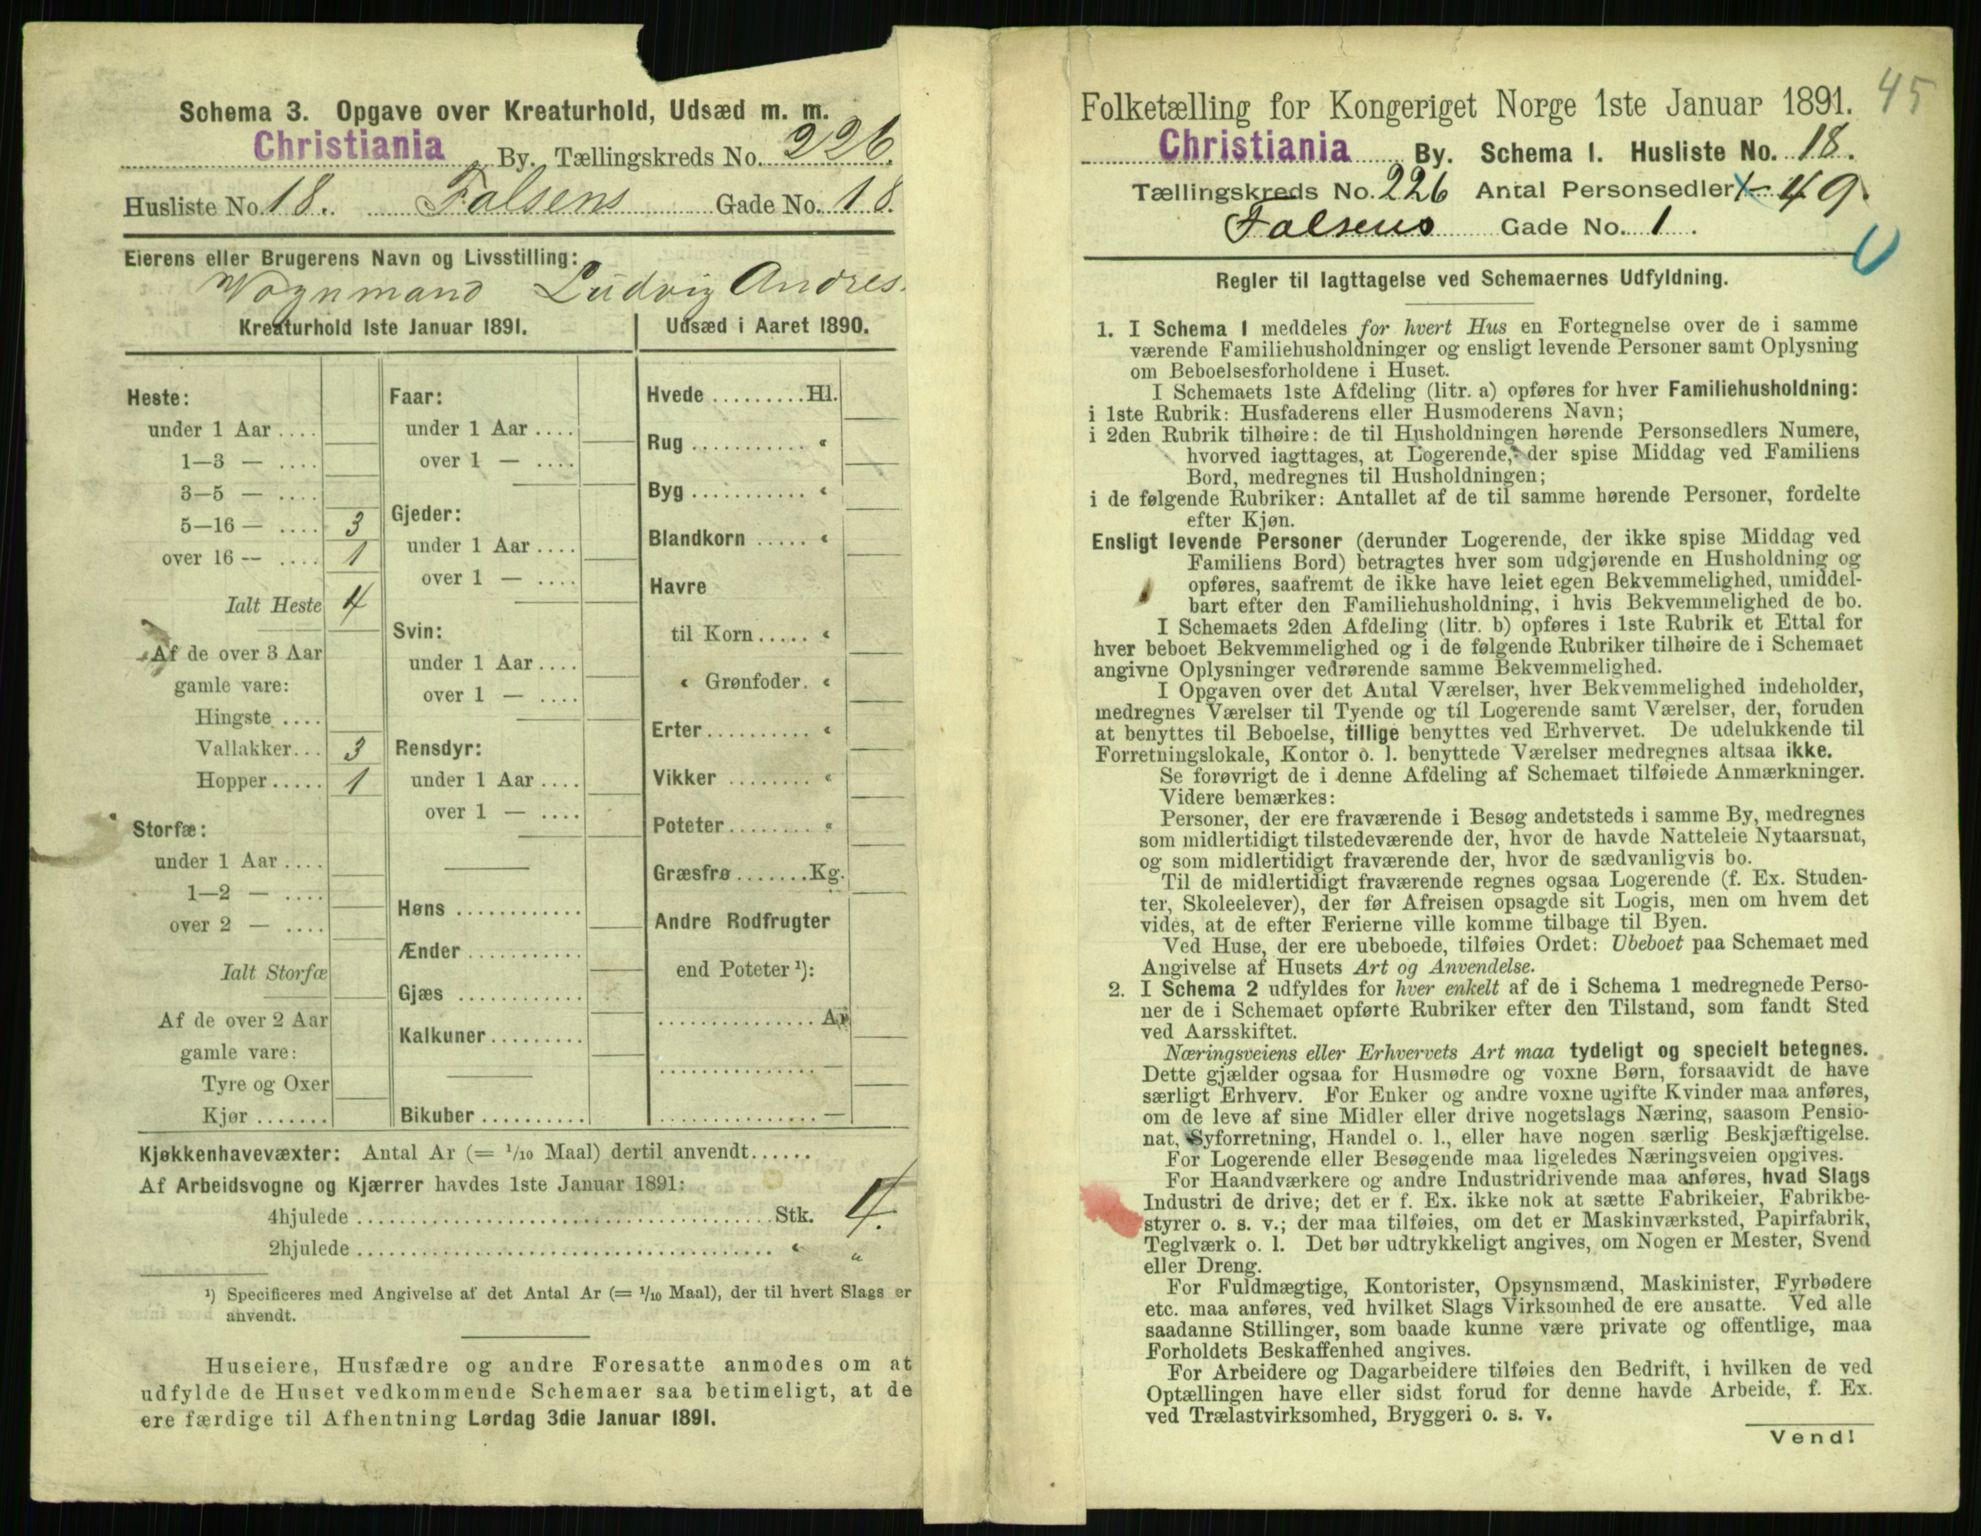 Schema 3. Opgave over Kreaturhold, Udsæd m. m.
Christiania By. Tællingskreds No. 226.
Husliste No. 18. Falsens Gade No. 18.
Eierens eller Brugerens Navn og Livsstilling:
Vognmand Ludvig Andres.
Kreaturhold 1ste Januar 1891.
Heste:
under 1 Aar ....
1—3 — ....
3—5 — ....
5—16 — .... 3
over 16 — .... 1
Ialt Heste 4
Af de over 3 Aar
gamle vare:
Hingste ....
Vallakker... 3
Hopper..... 1
Storfæ:
under 1 Aar ....
1—2 — ....
over 2 — ....
Ialt Storfæ
Af de over 2 Aar
gamle vare:
Tyre og Oxer
Kjør .......
Faar:
under 1 Aar ....
over 1 — ....
Gjeder:
under 1 Aar ....
over 1 — ....
Svin:
under 1 Aar ....
over 1 — ....
Rensdyr:
under 1 Aar ....
over 1 — ....
Høns ............
Ænder ...........
Gjæs ............
Kalkuner.........
Bikuber ..........
Udsæd i Aaret 1890.
Hvede .........Hl.
Rug ........... "
Byg ........... "
Blandkorn ..... "
Havre
til Korn ..... "
" Grønfoder. "
Erter .......... "
Vikker ........ "
Poteter ........ "
Græsfrø .......Kg.
Andre Rodfrugter
end Poteter ¹):
............... Ar
............... —
............... —
Kjøkkenhavevæxter: Antal Ar (= 1/10 Maal) dertil anvendt......
Af Arbeidsvogne og Kjærrer havdes 1ste Januar 1891:
4hjulede ........................................Stk. 4.
2hjulede ........................................ " "
¹) Specificeres med Angivelse af det Antal Ar (= 1/10 Maal), der til hvert Slags er
anvendt.
Huseiere, Husfædre og andre Foresatte anmodes om at
udfylde de Huset vedkommende Schemaer saa betimeligt, at de
ere færdige til Afhentning Lørdag 3die Januar 1891.
45
Folketælling for Kongeriget Norge 1ste Januar 1891.
Christiania By. Schema 1. Husliste No. 18.
Tællingskreds No. 226 Antal Personsedler 49.
Falsens Gade No. 1.
Regler til Iagttagelse ved Schemaernes Udfyldning.
1. I Schema 1 meddeles for hvert Hus en Fortegnelse over de i samme
værende Familiehusholdninger og ensligt levende Personer samt Oplysning
om Beboelsesforholdene i Huset.
I Schemaets 1ste Afdeling (litr. a) opføres for hver Familiehusholdning:
i 1ste Rubrik: Husfaderens eller Husmoderens Navn;
i 2den Rubrik tilhøire: de til Husholdningen hørende Personsedlers Numere,
hvorved iagttages, at Logerende, der spise Middag ved Familiens
Bord, medregnes til Husholdningen;
i de følgende Rubriker: Antallet af de til samme hørende Personer, fordelte
efter Kjøn.
Ensligt levende Personer (derunder Logerende, der ikke spise Middag ved
Familiens Bord) betragtes hver som udgjørende en Husholdning og
opføres, saafremt de ikke have leiet egen Bekvemmelighed, umiddel-
bart efter den Familiehusholdning, i hvis Bekvemmelighed de bo.
I Schemaets 2den Afdeling (litr. b) opføres i 1ste Rubrik et Ettal for
hver beboet Bekvemmelighed og i de følgende Rubriker tilhøire de i Schemaet
angivne Oplysninger vedrørende samme Bekvemmelighed.
I Opgaven over det Antal Værelser, hver Bekvemmelighed indeholder,
medregnes Værelser til Tyende og til Logerende samt Værelser, der, foruden
at benyttes til Beboelse, tillige benyttes ved Erhvervet. De udelukkende til
Forretningslokale, Kontor o. l. benyttede Værelser medregnes altsaa ikke.
Se forøvrigt de i denne Afdeling af Schemaet tilføiede Anmærkninger.
Videre bemærkes:
Personer, der ere fraværende i Besøg andetsteds i samme By, medregnes
som midlertidigt tilstedeværende der, hvor de havde Natteleie Nytaarsnat,
og som midlertidigt fraværende der, hvor de sædvanligvis bo.
Til de midlertidigt fraværende regnes ogsaa Logerende (f. Ex. Studen-
ter, Skoleelever), der før Afreisen opsagde sit Logis, men om hvem det
vides, at de efter Ferierne ville komme tilbage til Byen.
Ved Huse, der ere ubeboede, tilføies Ordet: Ubeboet paa Schemaet med
Angivelse af Husets Art og Anvendelse.
2. I Schema 2 udfyldes for hver enkelt af de i Schema 1 medregnede Perso-
ner de i Schemaet opførte Rubriker efter den Tilstand, som fandt Sted
ved Aarsskiftet.
Næringsveiens eller Erhvervets Art maa tydeligt og specielt betegnes.
Dette gjælder ogsaa for Husmødre og voxne Børn, forsaavidt de have
særligt Erhverv. For Enker og andre voxne ugifte Kvinder maa anføres,
om de leve af sine Midler eller drive nogetslags Næring, saasom Pensio-
nat, Syforretning, Handel o. l., eller have nogen særlig Beskjæftigelse.
For Logerende eller Besøgende maa ligeledes Næringsveien opgives.
For Haandværkere og andre Industridrivende maa anføres, hvad Slags
Industri de drive; det er f. Ex. ikke nok at sætte Fabrikeier, Fabrikbe-
styrer o. s. v.; der maa tilføies, om det er Maskinværksted, Papirfabrik,
Teglværk o. l. Det bør udtrykkeligt angives, om Nogen er Mester, Svend
eller Dreng.
For Fuldmægtige, Kontorister, Opsynsmænd, Maskinister, Fyrbødere
etc. maa anføres, ved hvilket Slags Virksomhed de ere ansatte. Ved alle
saadanne Stillinger, som baade kunne være private og offentlige, maa
Forholdets Beskaffenhed angives.
For Arbeidere og Dagarbeidere tilføies den Bedrift, i hvilken de ved
Optællingen have eller sidst forud for denne havde Arbeide, f. Ex.
ved Trælastvirksomhed, Bryggeri o. s. v.
Vend!